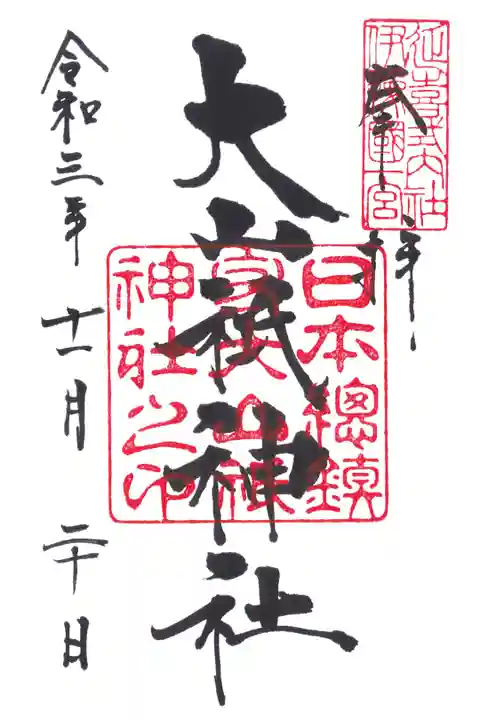 奉拝
延喜式内社
伊豫國一宮
大山祇神社
日本總鎮
守大山祇
神社之印
令和三年十一月二十日